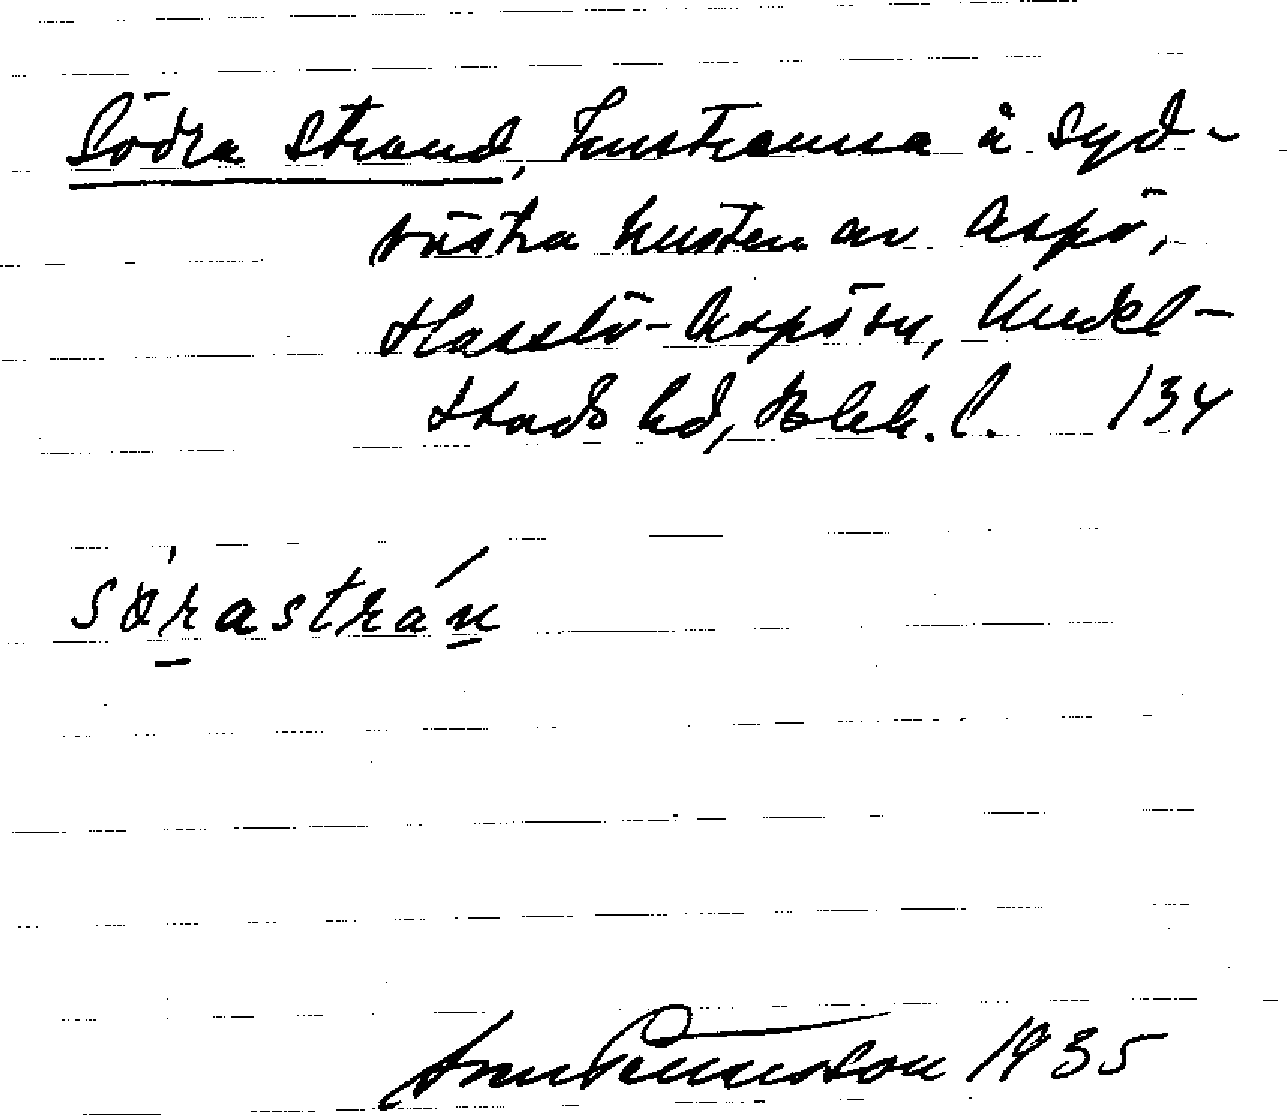 Södra Strand, kustremsa å syd-
västra kusten av Aspö,
Hasslö-Aspö sn, Medel-
stads hd, Blek. l. 134
sörastrán
1935